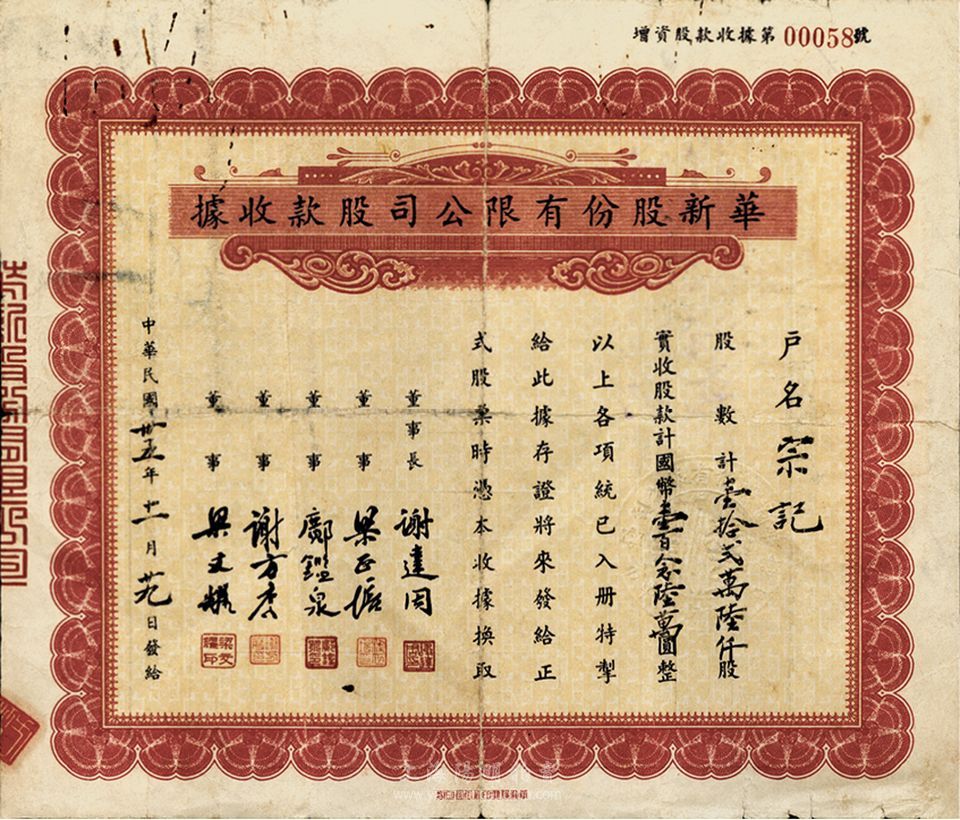 增資股款收據第00058號
華新股份有限公司股款收據
戶名宗記
股數計壹拾貳萬陸仟股
實收股款計國幣壹百念陸萬圓整
以上各項統已入册特掣
給此據存證將來發給正
式股票時憑本收據換取
董事長 謝達因
董事 梁正振
董事 鄺鑑泉
董事 謝方彥
董事 梁文耀
中華民國卅五年十一月廿九日發給
梁文耀印